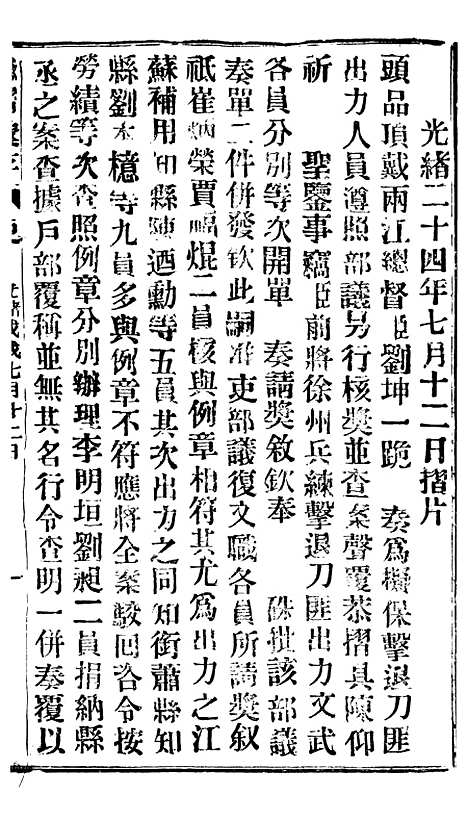 光緒二十四年七月十二日摺片
頭品頂戴兩江總督臣劉坤一跪　奏爲擬保擊退刀匪
出力人員遵照部議另行核獎並查案聲覆恭摺具陳仰
祈　聖鑒事竊臣前將徐州兵練擊退刀匪出力文武
各員分別等次開單　奏請獎敘欽奉　硃批該部議
奏單二件併發欽此嗣准吏部議復文職各員所請獎叙
祇崔炳榮賈福焜二員核與例章相符其尤爲出力之江
蘇補用知縣陳迺勳等五員其次出力之同知銜蕭縣知
縣劉本檍等九員多與例章不符應將全案駮回咨令按
勞績等次查照例章分別辦理李明垣劉昶二員捐納縣
丞之案查據戶部覆稱並無其名行令查明一併奏覆以
光緒戊戌七月十二日
一